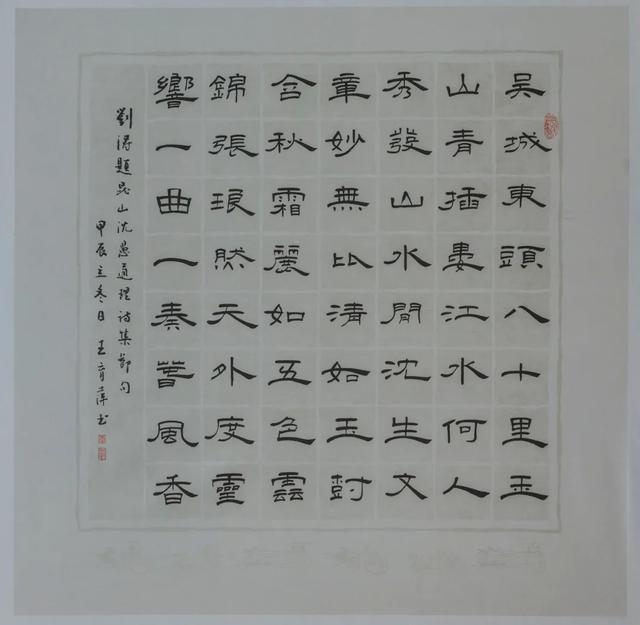 吳城東頭八十里玉
山青插婁江水何人
秀發山水間沈生文
章妙無比清如玉尌
含秋霜麗如五色雲
錦張琅然天外度靈
響一曲一奏萅風香
劉溥題崑山沈愚通理詩集節句
甲辰立冬日 王育萍書